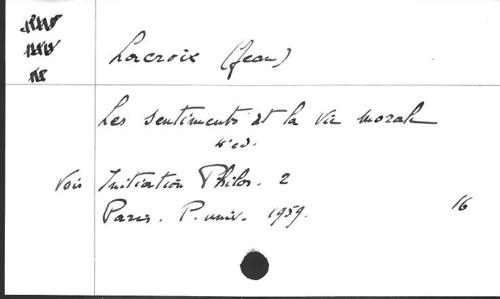 Lacroix (Jean)
Les sentiments et la vie morale
4e ed.
Voir Initiation Philos. 2
Paris. P. univ. 1959. 16